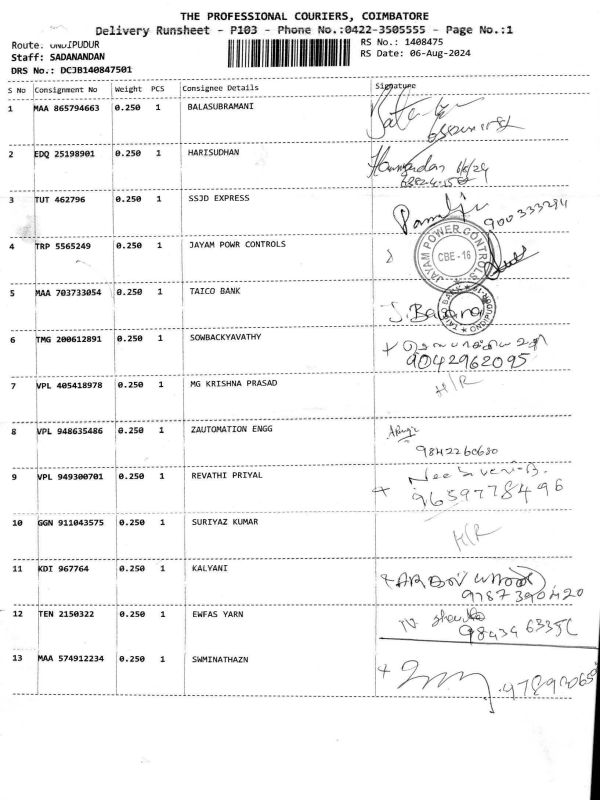 THE PROFESSIONAL COURIERS, COIMBATORE
Delivery Runsheet - P103 - Phone No.:0422-3505555 - Page No.:1
Route: UNDIPUDUR
Staff: SADANANDAN
DRS No.: DCJB140847501
RS No.: 1408475
RS Date: 06-Aug-2024
S No Consignment No Weight PCS Consignee Details Signature
1 MAA 865794663 0.250 1 BALASUBRAMANI
2 EDQ 25198901 0.250 1 HARISUDHAN 6/8/24
3 TUT 462796 0.250 1 SSJD EXPRESS
4 TRP 5565249 0.250 1 JAYAM POWR CONTROLS
JAYAM POWER CONTROLS
CBE - 16
5 MAA 703733054 0.250 1 TAICO BANK
6 TMG 200612891 0.250 1 SOWBACKYAVATHY
9042962095
7 VPL 405418978 0.250 1 MG KRISHNA PRASAD H/R
8 VPL 948635486 0.250 1 ZAUTOMATION ENGG
9842260630
9 VPL 949300701 0.250 1 REVATHI PRIYAL
9659778496
10 GGN 911043575 0.250 1 SURIYAZ KUMAR H/R
11 KDI 967764 0.250 1 KALYANI
9787390420
12 TEN 2150322 0.250 1 EWFAS YARN
13 MAA 574912234 0.250 1 SWMINATHAZN